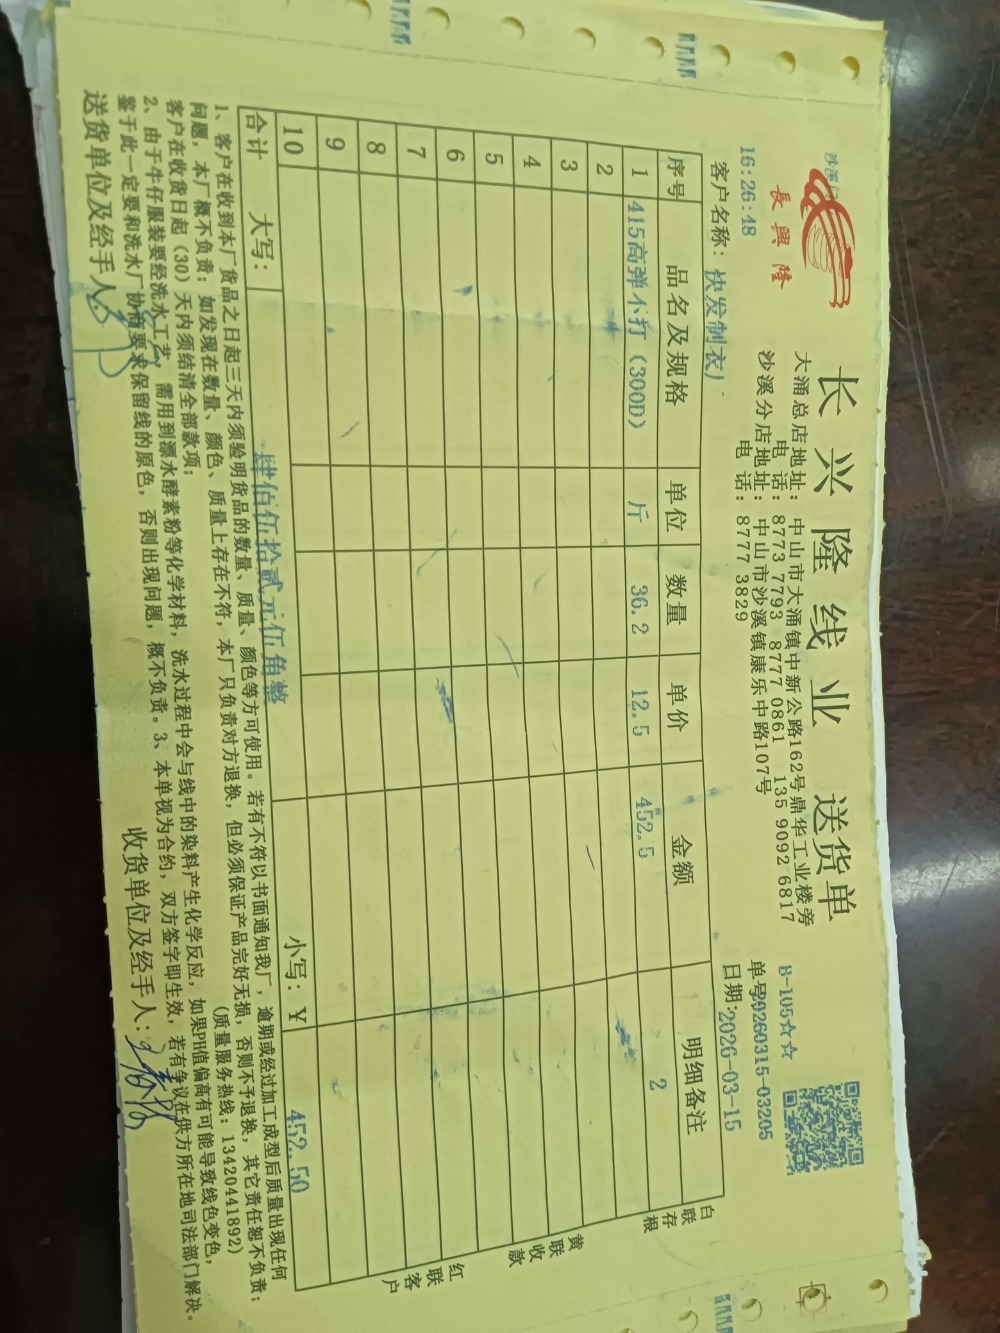 長興隆
长兴隆线业 送货单
大涌总店地址：中山市大涌镇中新公路162号鼎华工业楼旁
电 话：8773 7793 8777 0861 135 9092 6817
沙溪分店地址：中山市沙溪镇康乐中路107号
电 话：8777 3829
B-105☆☆
单号20260315-03205
日期:2026-03-15
16:26:48
客户名称：快发制衣厂
序号 品名及规格 单位 数量 单价 金额 明细备注
1 415高弹不打（300D） 斤 36.2 12.5 452.5 2
2
3
4
5
6
7
8
9
10
合计 大写： 肆佰伍拾贰元伍角整 小写：￥ 452.50
白联存根
黄联收款
红联客户
1、客户在收到本厂货品之日起三天内须验明货品的数量、质量、颜色等方可使用。若有不符以书面通知我厂，逾期或经过加工成型后质量出现任何
问题，本厂概不负责；如发现在数量、颜色、质量上存在不符，本厂只负责对方退换，但必须保证产品完好无损，否则不予退换，其它责任恕不负责；
客户在收货日起（30）天内须结清全部款项； （质量服务热线：13420441892）
2、由于牛仔服装要经洗水工艺，需用到漂水酵素粉等化学材料，洗水过程中会与线中的染料产生化学反应，如果PH值偏高有可能导致线色变色，
鉴于此一定要和洗水厂协商要求保留线的原色，否则出现问题，概不负责。3、本单视为合约，双方签字即生效，若有争议在供方所在地司法部门解决。
送货单位及经手人：
收货单位及经手人：